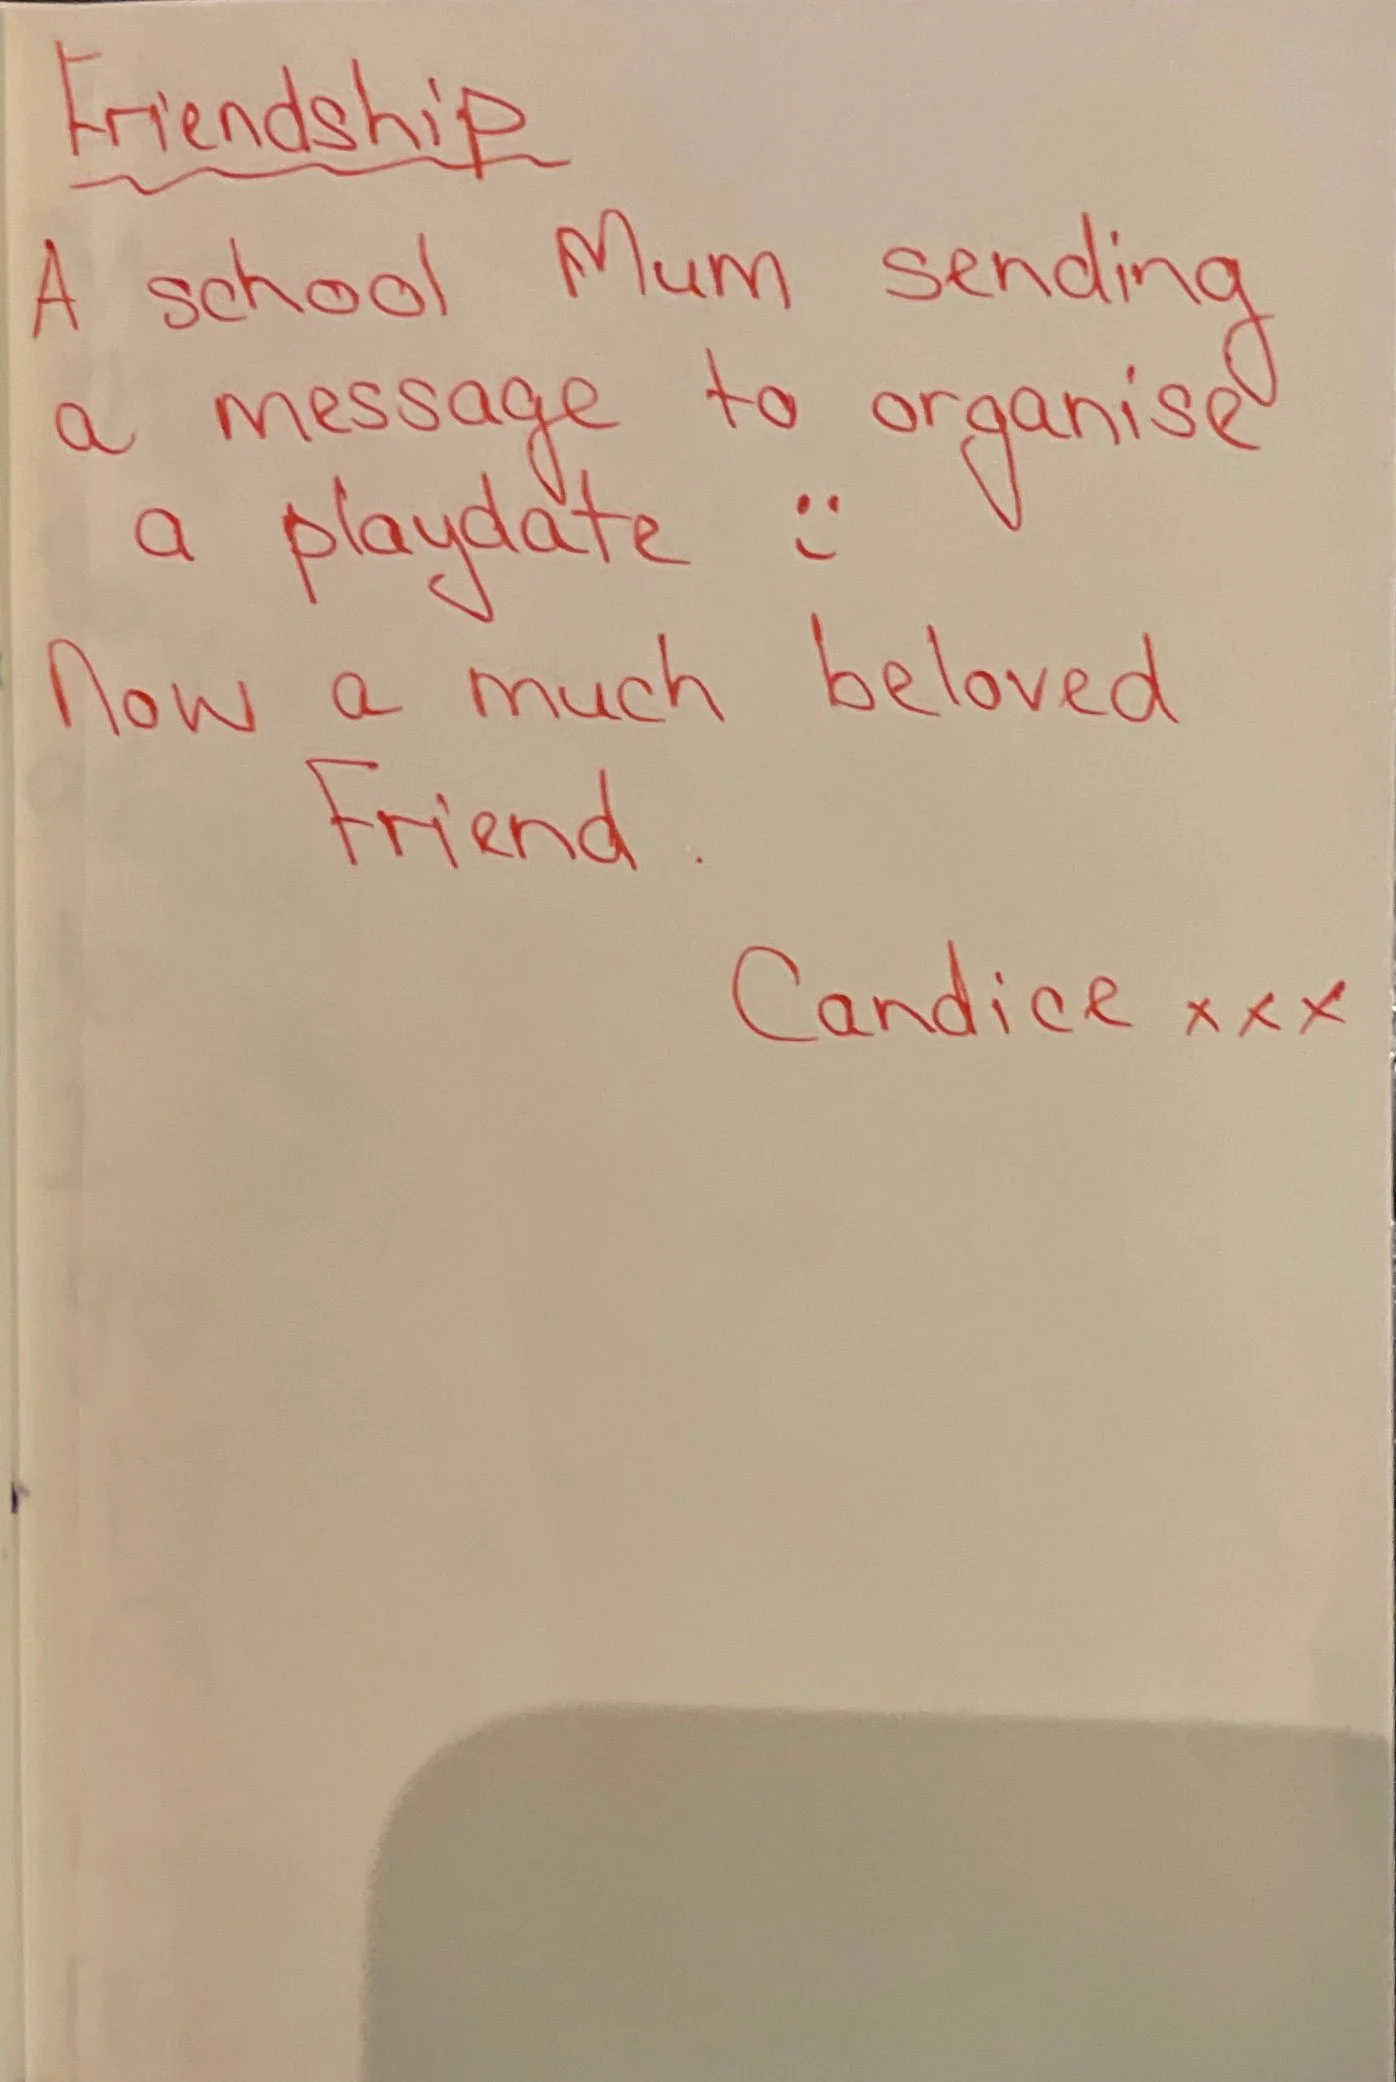 Friendship
A school Mum sending
a message to organise
a playdate :)
Now a much beloved
Friend.
Candice xxx